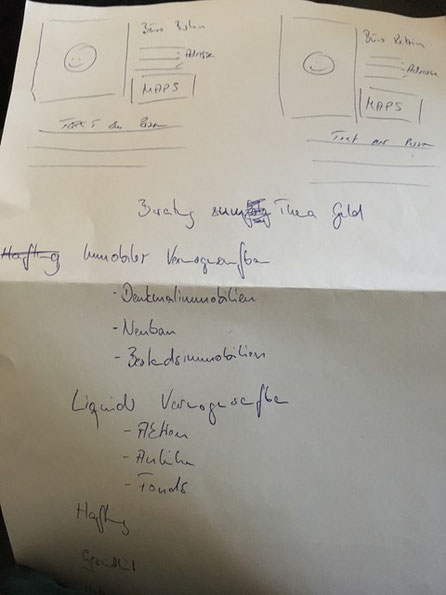 Büro
Adresse
MAPS
Text zur Person
Büro
Adresse
MAPS
Text zur Person
Beratung zum Thema Geld
Haftung Immobiler Vermögensaufbau
- Denkmalimmobilien
- Neubau
- Bestandsimmobilien
Liquide Vermögensaufbau
- Aktien
- Anleihe
- Fonds
Haftung